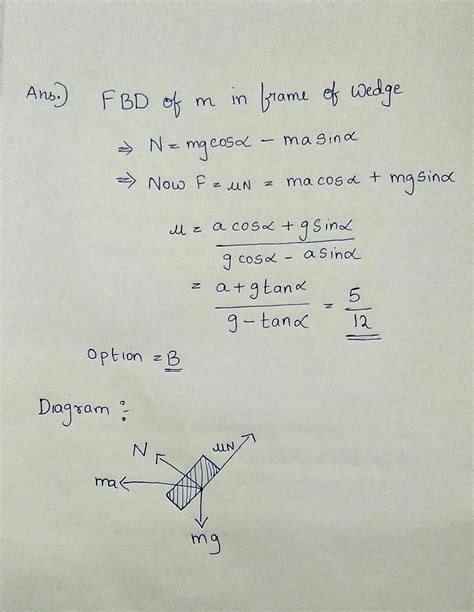 Ans.) FBD of m in frame of wedge
⇒ N = mgcosα − masinα
⇒ Now F = μN = macosα + mgsinα
μ = acosα + gsinα
gcosα − asinα
= a + gtanα
g − tanα
= 5
12
Option = B
Diagram :-
N
μN
ma
mg